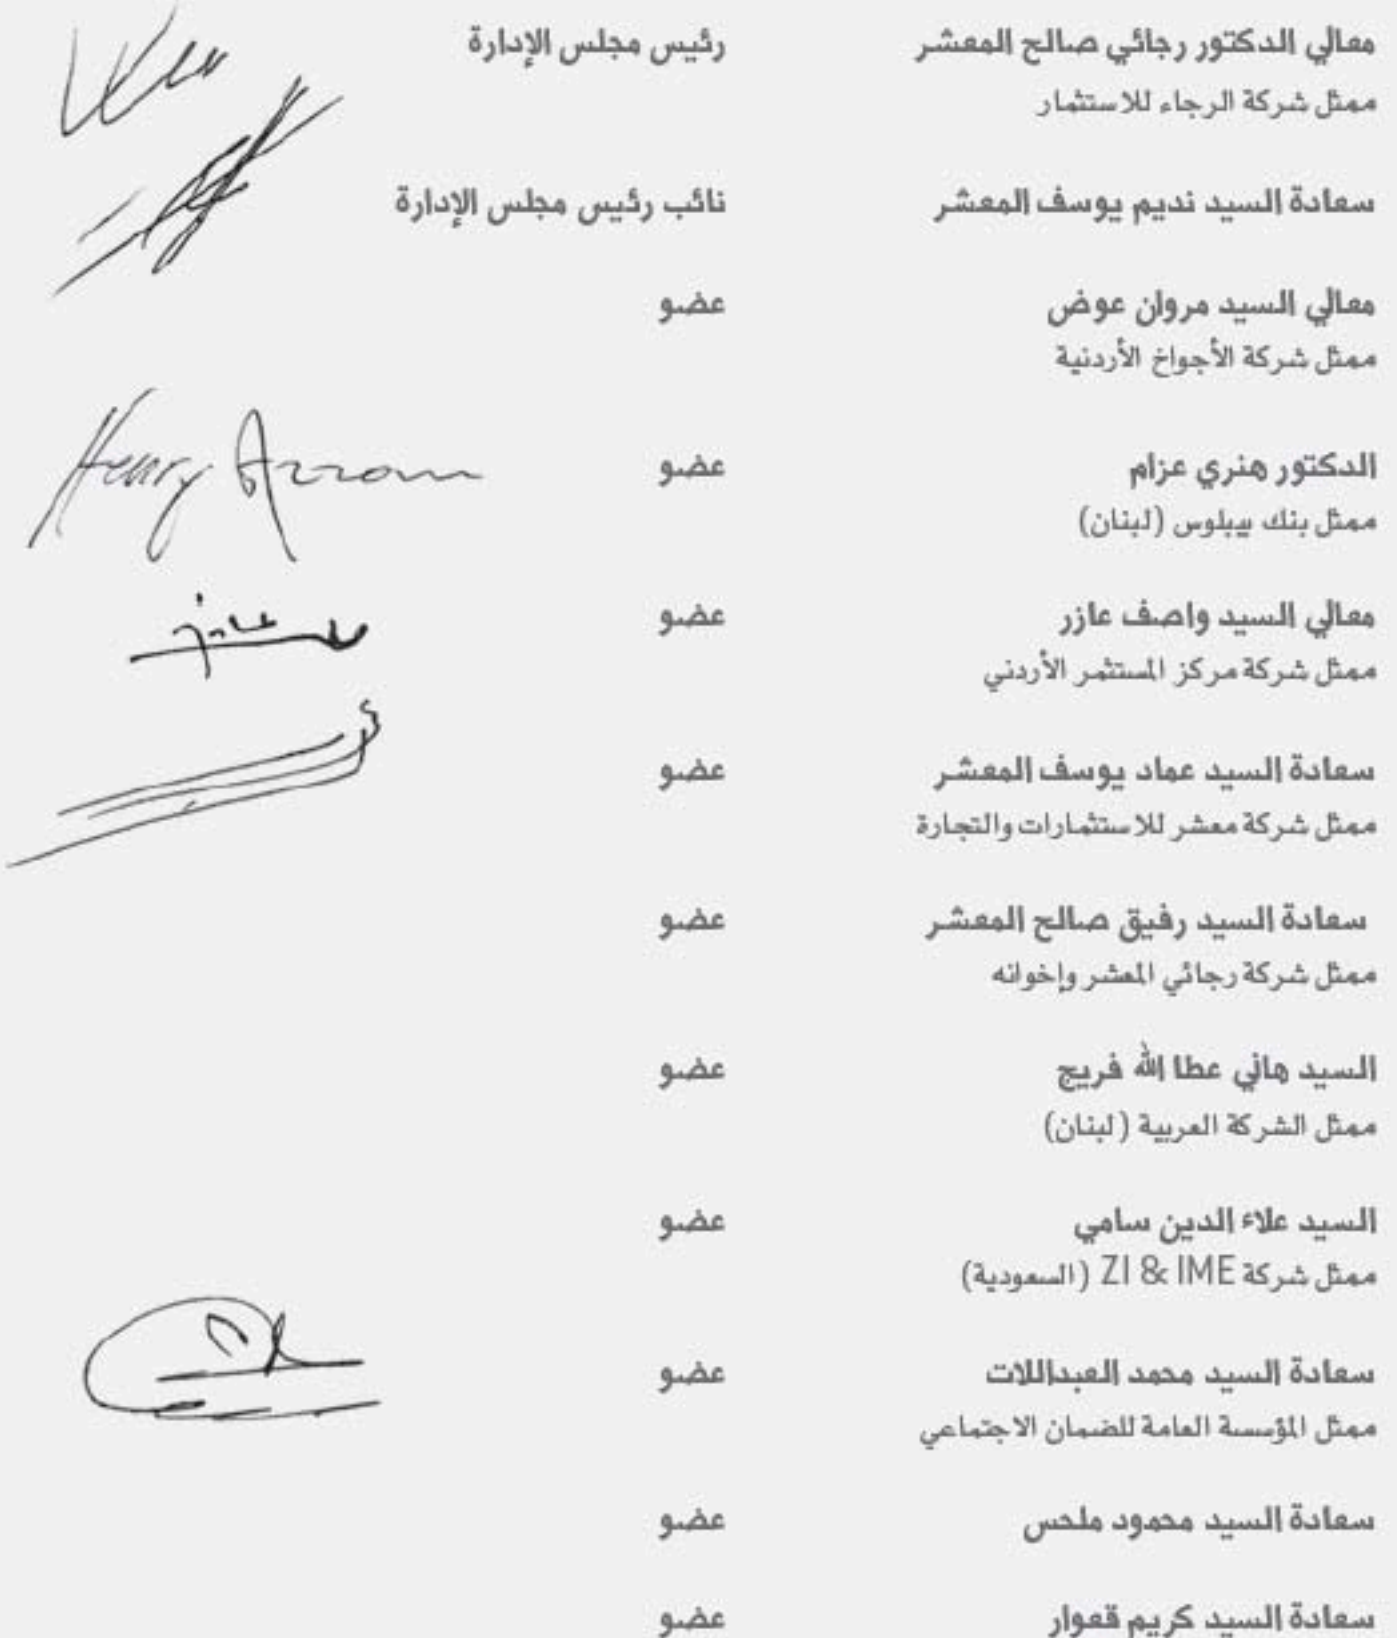 معالي الدكتور رجائي صالح المعشر رئيس مجلس الإدارة
ممثل شركة الرجاء للاستثمار
سعادة السيد نديم يوسف المعشر نائب رئيس مجلس الإدارة
معالي السيد مروان عوض عضو
ممثل شركة الأجواخ الأردنية
الدكتور هنري عزام عضو
Henry Azzam
ممثل بنك بيبلوس (لبنان)
معالي السيد واصف عازر عضو
ممثل شركة مركز المستثمر الأردني
سعادة السيد عماد يوسف المعشر عضو
ممثل شركة معشر للاستثمارات والتجارة
سعادة السيد رفيق صالح المعشر عضو
ممثل شركة رجائي المعشر وإخوانه
السيد هاني عطا الله فريج عضو
ممثل الشركة العربية (لبنان)
السيد علاء الدين سامي عضو
ممثل شركة ZI & IME (السعودية)
سعادة السيد محمد العبداللات عضو
ممثل المؤسسة العامة للضمان الاجتماعي
سعادة السيد محمود ملحس عضو
سعادة السيد كريم قعوار عضو